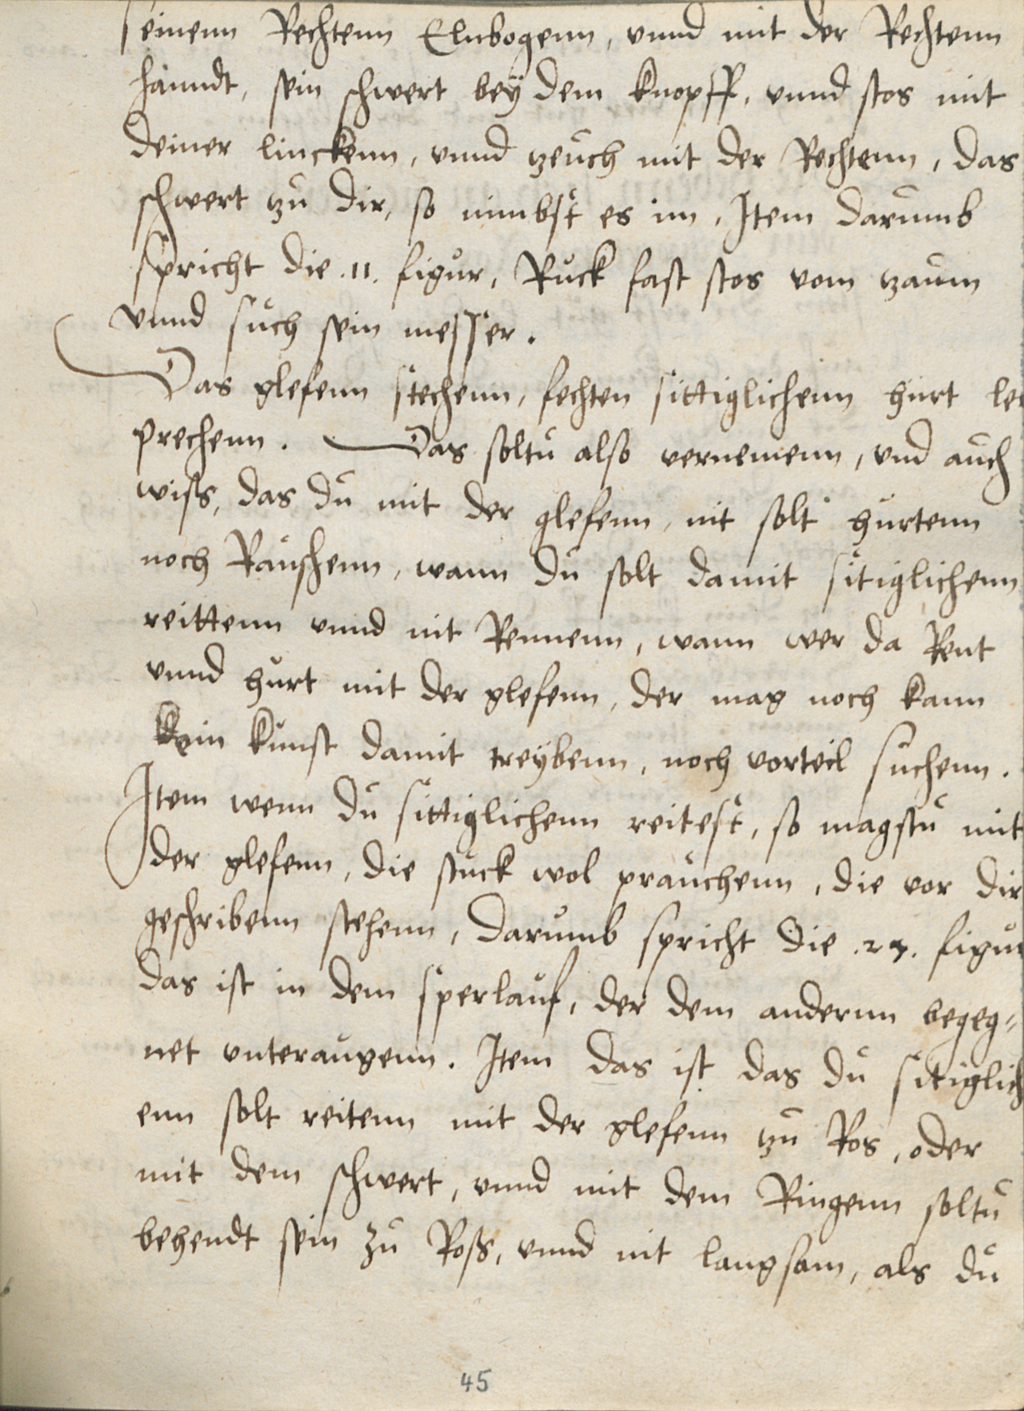 seinenn Rechtenn Elnbogenn, vnnd mit der Rechtenn
hanndt, sein schwert bey dem knopff, vnnd stos mit
deiner linckenn, vnnd zeuch mit der Rechtenn, das
schwert zu dir, so nimbst es im, Item darumb
spricht die .11. figur, Ruck fast stos vom zaum
vnnd such sein messer.
Das glefenn stechenn, fechten sittiglichenn hurt
prechenn. Das soltu also vernemenn, vnd auch
wiss, das du mit der glefenn, nit solt hurtenn
noch Rauschenn, wann du solt damit sitiglichenn
reittenn vnnd nit Rennenn, wann wer da Rent
vnnd hurt mit der glefenn, der mag noch kann
kein kunst damit treybenn, noch vorteil suchenn.
Item wenn du sittiglichenn reitest, so magstu mit
der glefenn, die stuck wol prauchenn, die vor dir
geschribenn stehenn, darumb spricht die .23. figur
das ist in dem sperlauf, der dem andernn begeg=
net vnteraugenn. Item das ist das du sitiglich
enn solt reitenn mit der glefenn zu Ros, oder
mit dem schwert, vnnd mit dem Ringenn soltu
behendt sein zu Ross, vnnd nit langsam, als du
45